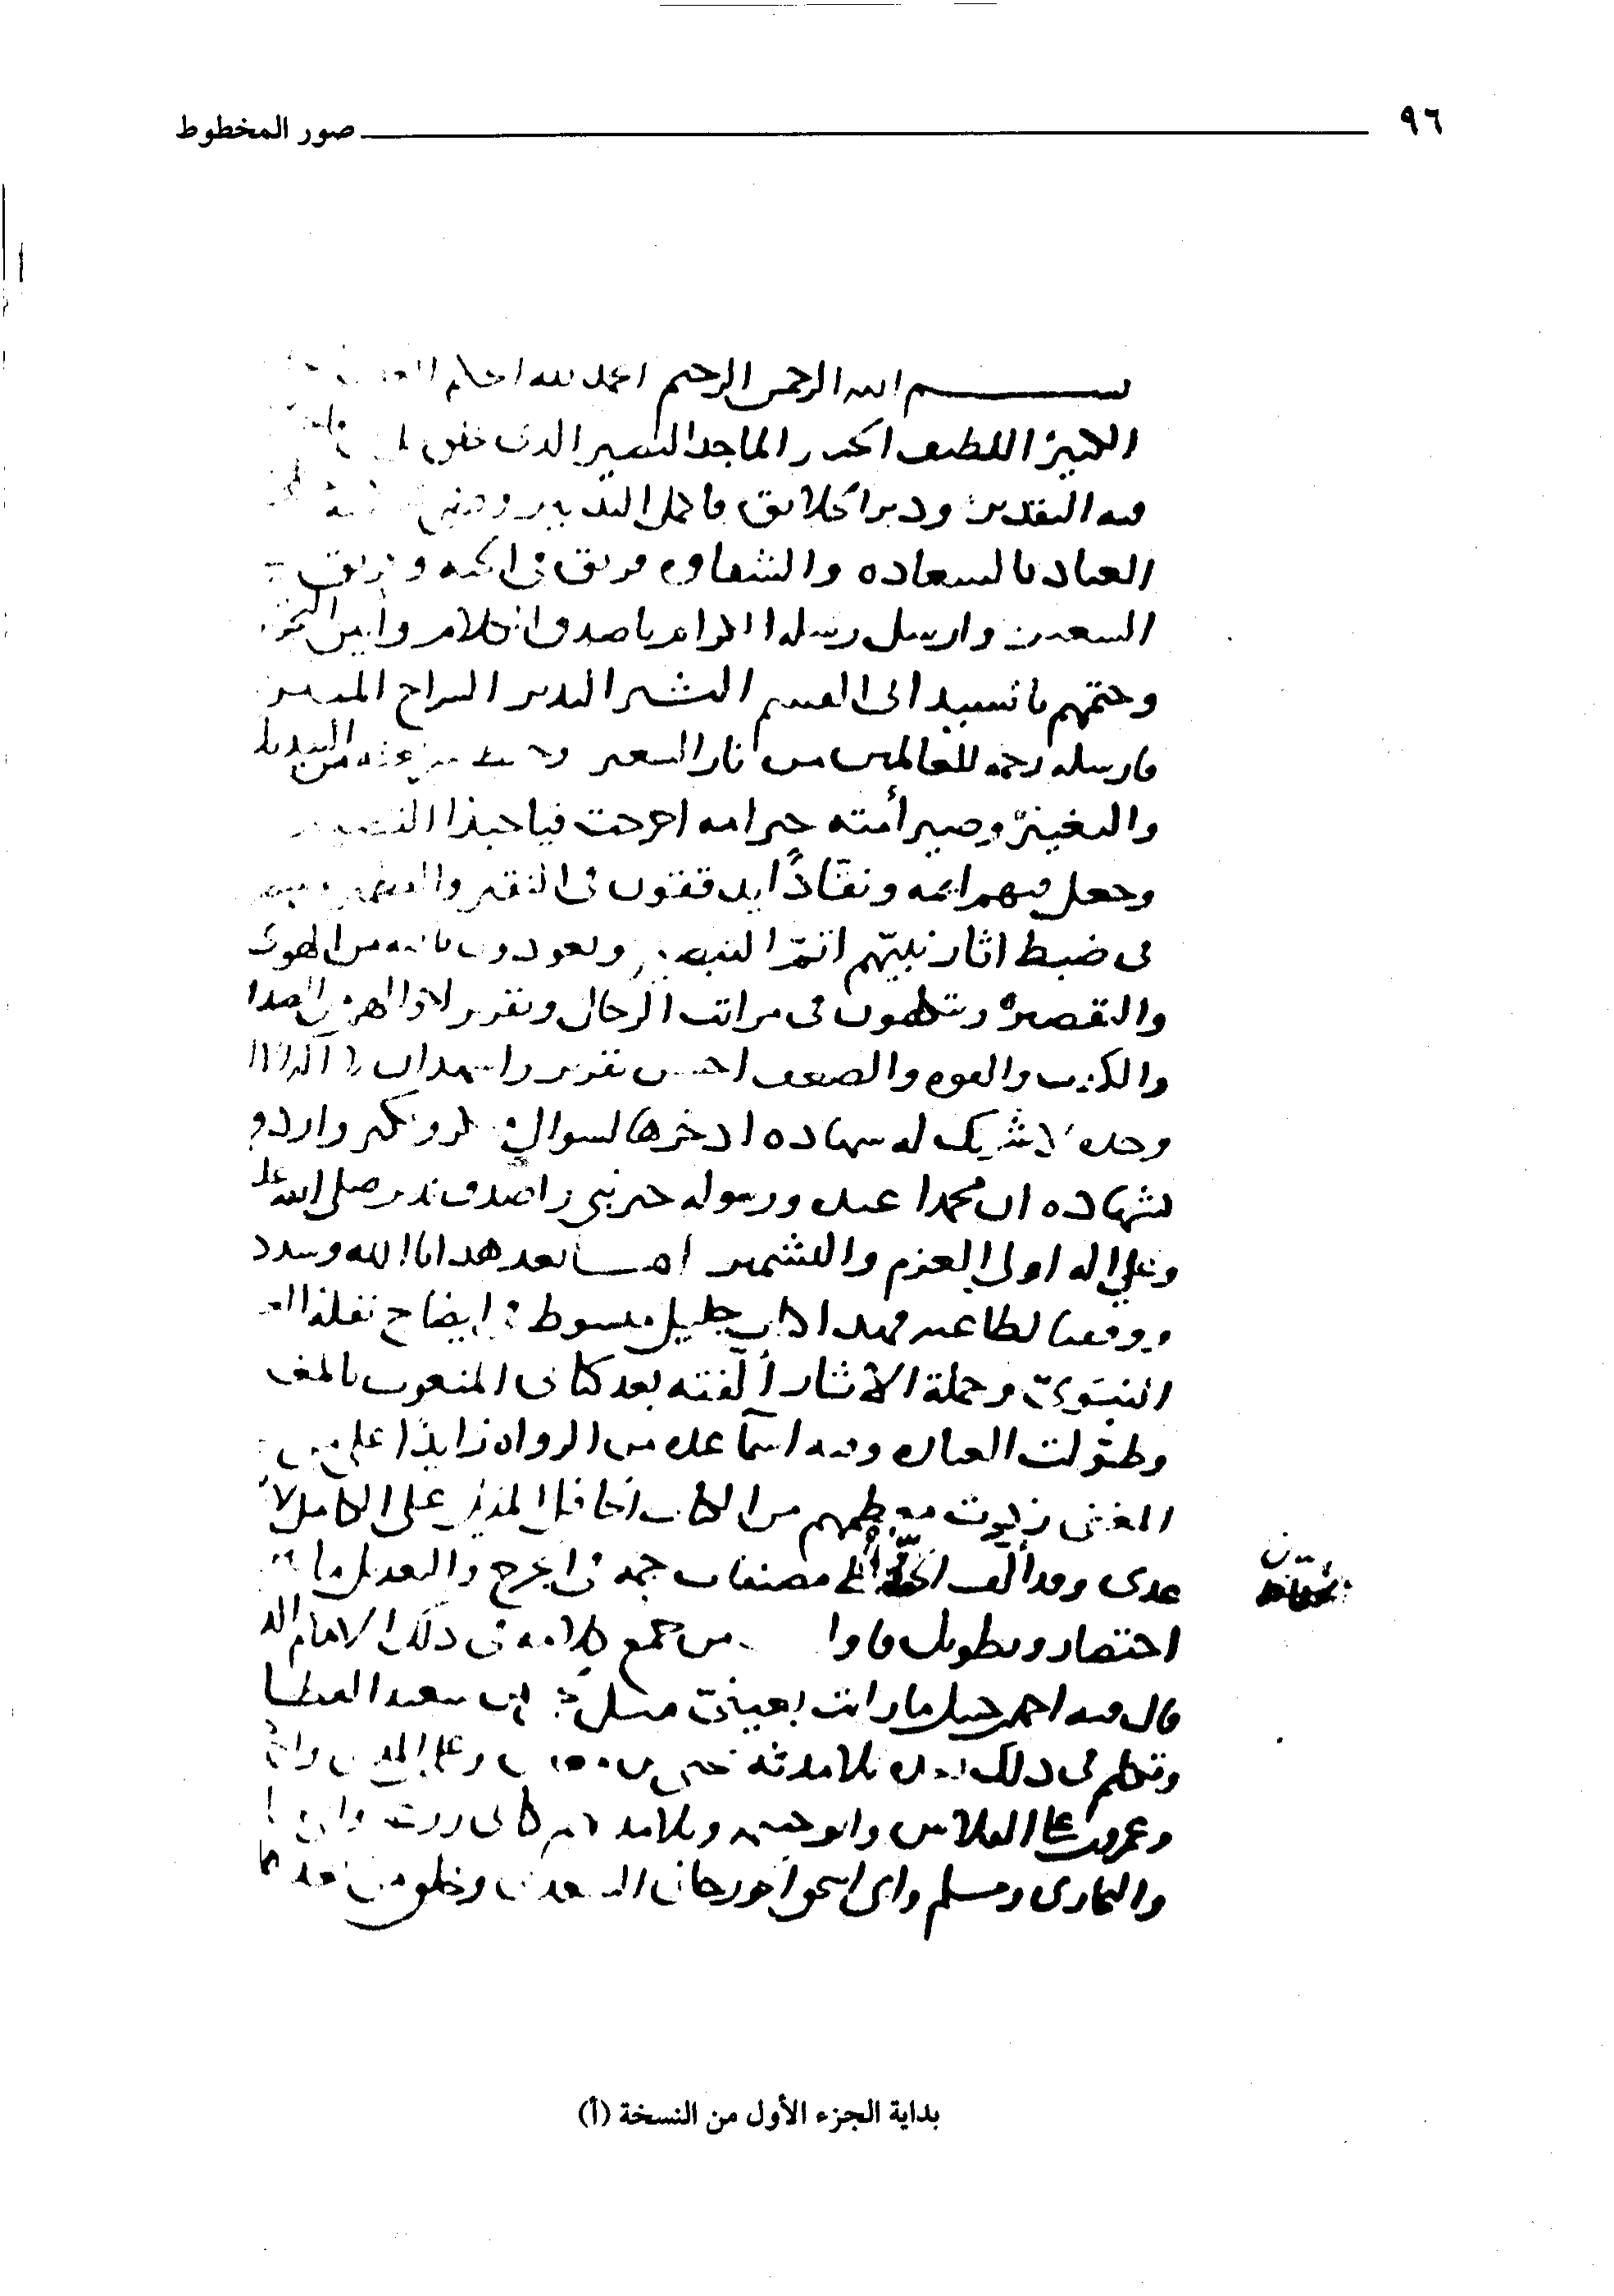 ٩٦
صور المخطوط
بسم الله الرحمن الرحيم الحمد لله الحكم العدل
الكبير اللطيف الخبير الماجد البصير الذي خلق
فيه التقدير ودبر الخلائق فأكمل التدبير وقضى
العباد بالسعادة والشقاوة فريق في الجنة وفريق
السعير وارسل رسله الكرام باصدق الكلام وأبين التحرير
وختمهم بالسيد ابي القسم البشير النذير السراج المنير
فارسله رحمة للعالمين من نار السعير من التبديل
والتغيير وصير أمته خير امه اخرجت فيا حبذا التصيير
وجعل فيهم ايمه ونقّادًا يدققون في النقير والقطمير
في ضبط اثار نبيّهم اتمّ التبصير ويعوذون بالله من الهوى
والتقصير ويتكلمون في مراتب الرجال وتقرير احوالهم من الصدق
والكذب والقوة والضعف احسن تقرير واشهد ان لا اله الا الله
وحده لا شريك له شهادة ادخرها لسوال منكر ونكير واردف
بشهادة ان محمدا عبده ورسوله خير نبي واصدق نذير صلى الله عليه
وعلى اله اولي العزم والتشمير اما بعد هدانا الله وسدد
ووفقنا لطاعته فهذا كتاب جليل مبسوط في إيضاح نقلة العلم
النبَوي وحملة الآثار ألفته بعد كتابي المنعوت بالمغني
وطوّلت العباره وفيه اسما عده من الرواه زايدًا على من في
المغني زدت معظمهم من الكتاب الحافل المذيل على الكامل لابن
عدي وقد ألف الحفّاظ مصنفات جمه في الجرح والتعديل ما بين
اختصار وتطويل فاول من جمع كلامه في ذلك الامام الذي
قال فيه احمد بن حنبل ما رايت بعينيّ مثل يحيى بن سعيد القطان
وتكلم في ذلك بعده تلامذته يحيى بن معين وعلي بن المديني واحمد
وعمرو بن علي الفلاس وابو خيثمه وتلامذتهم كابي زرعه وابي حاتم
والبخاري ومسلم وابي اسحق الجوزجاني السعدي وخلق من بعدهم
بداية الجزء الأول من النسخة (أ)